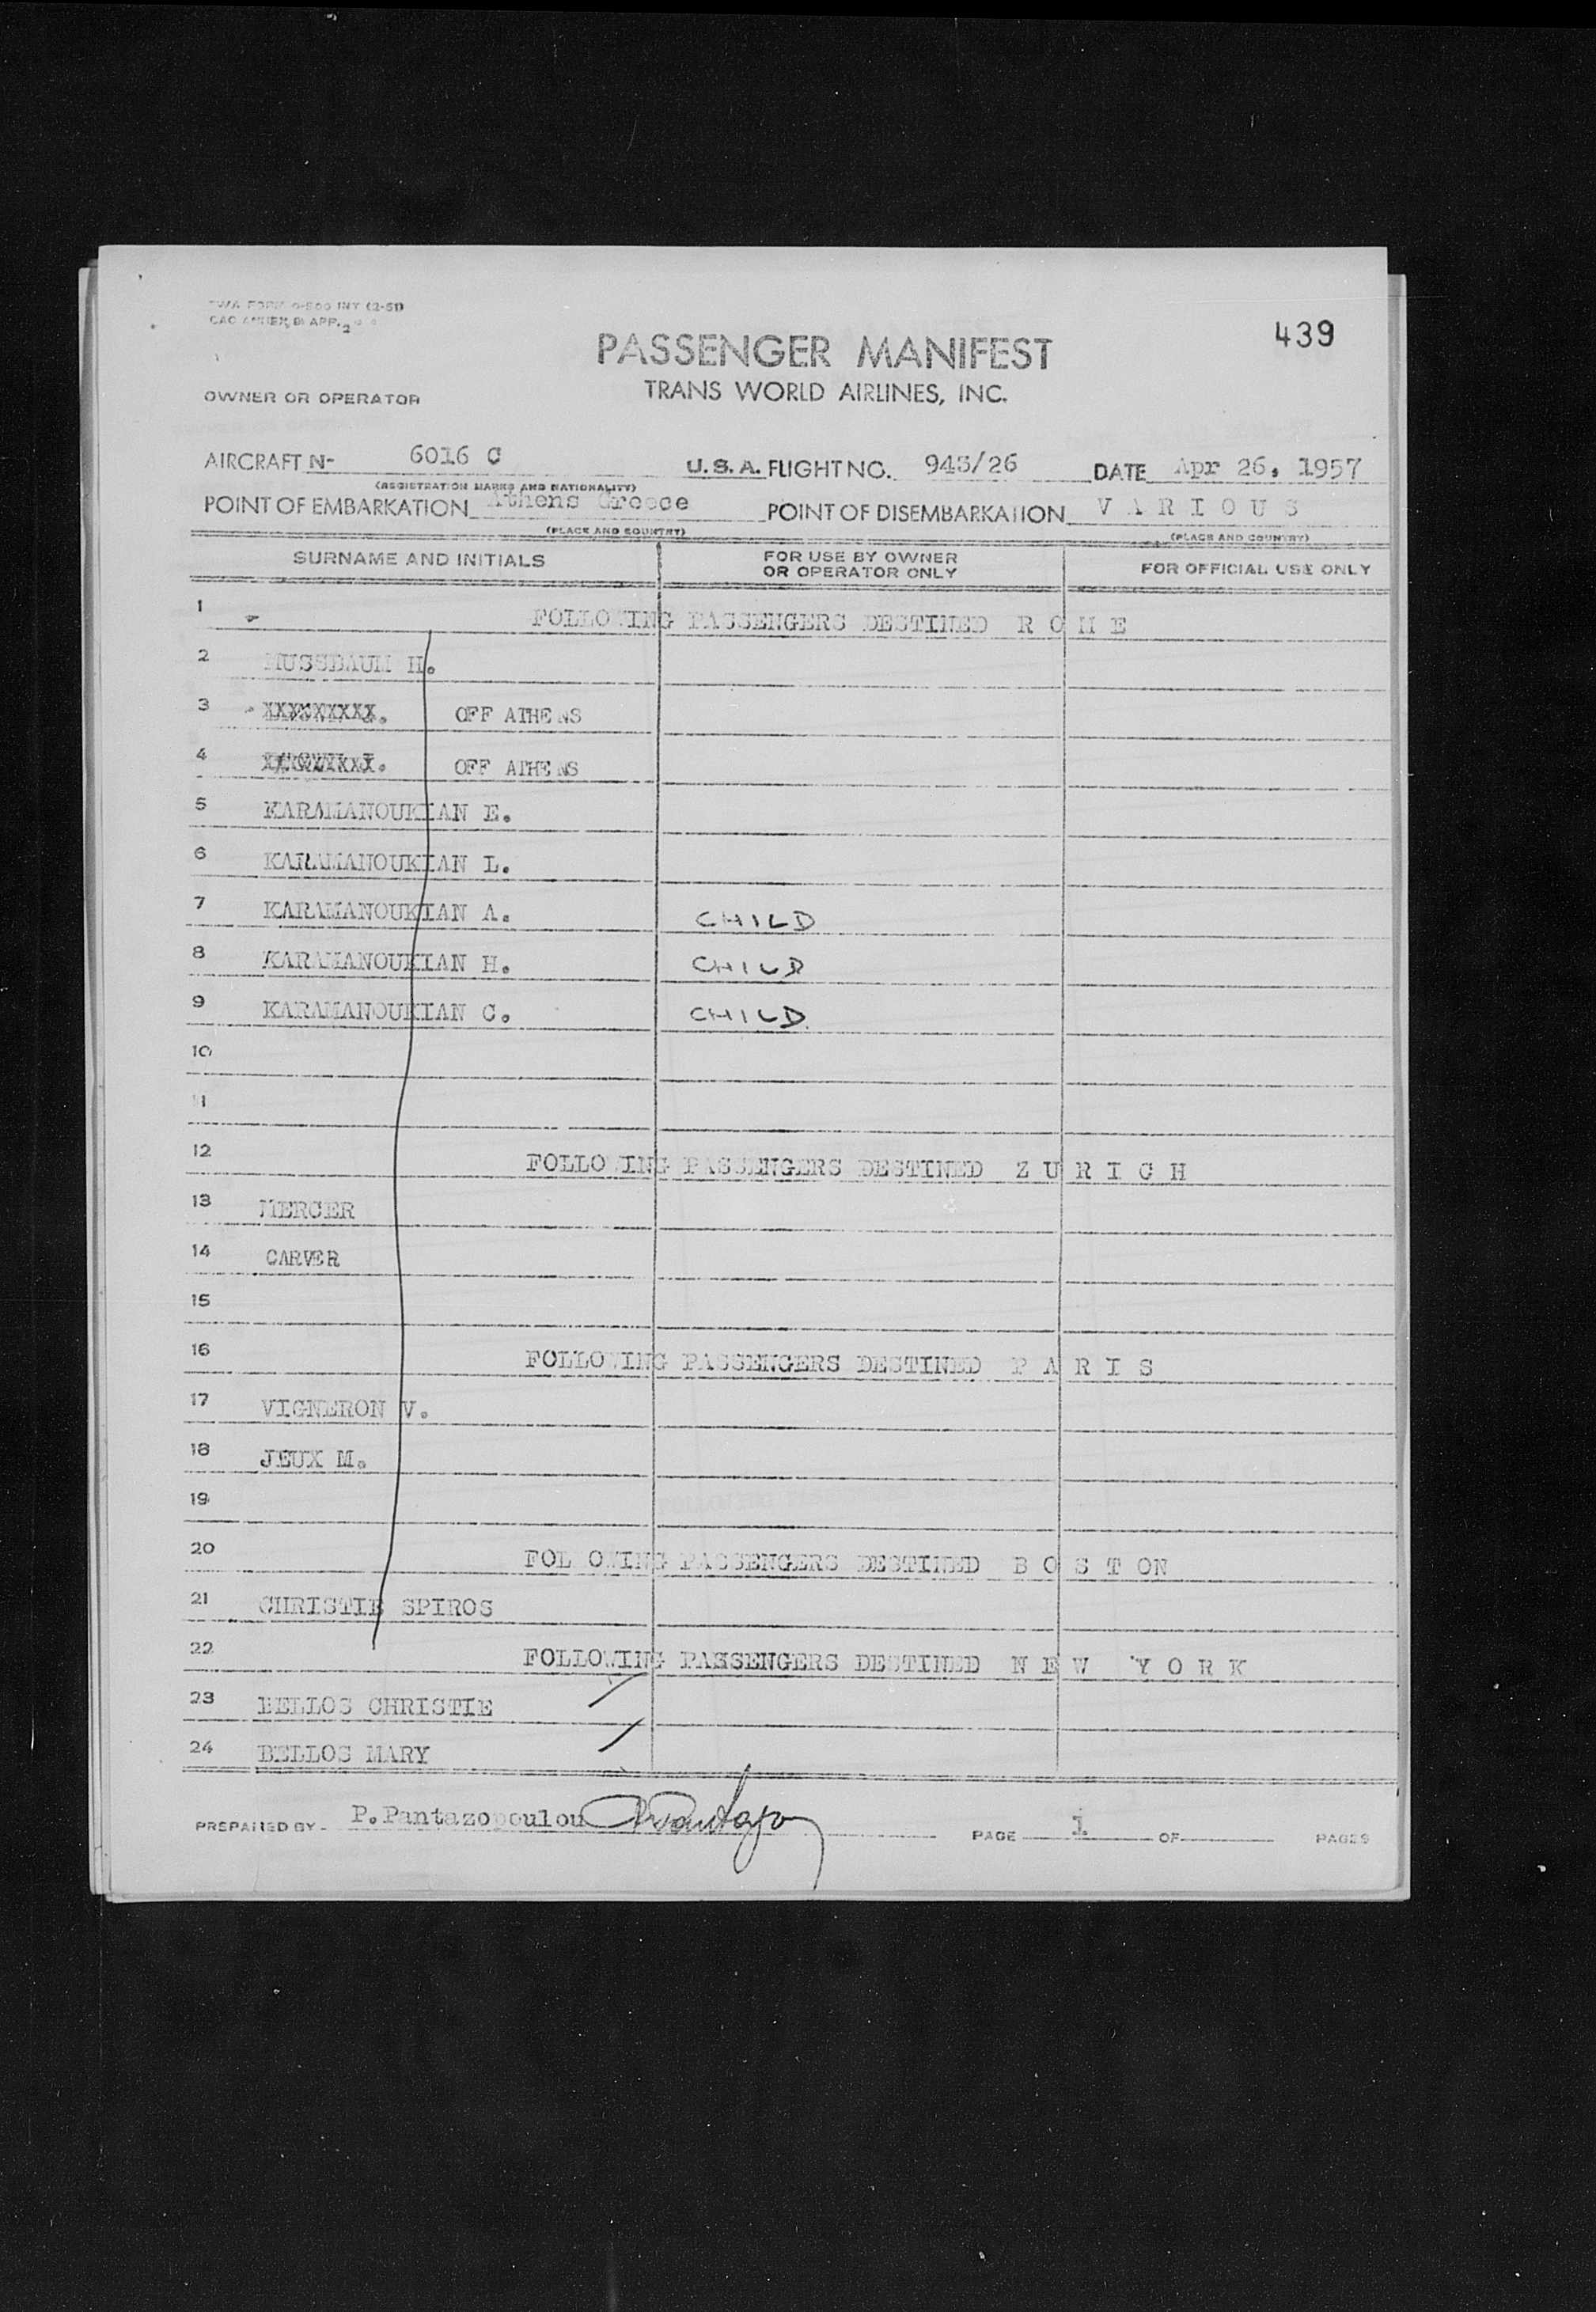 TWA FORM
CAO ANNEX 9 APP. 2
439
PASSENGER MANIFEST
TRANS WORLD AIRLINES, INC.
OWNER OR OPERATOR
AIRCRAFT N- 6016 C U.S.A. FLIGHT NO. 945/26 DATE Apr 26, 1957
(REGISTRATION MARKS AND NATIONALITY)
POINT OF EMBARKATION Athens Greece POINT OF DISEMBARKATION V A R I O U S
(PLACE AND COUNTRY) (PLACE AND COUNTRY)
SURNAME AND INITIALS FOR USE BY OWNER OR OPERATOR ONLY FOR OFFICIAL USE ONLY
1 FOLLOWING PASSENGERS DESTINED R O M E
2 NUSSBAUM H.
3 XXXXXXXXX. OFF ATHENS
4 OFF ATHENS
5 KARAMANOUKIAN E.
6 KARAMANOUKIAN L.
7 KARAMANOUKIAN A. CHILD
8 KARAMANOUKIAN H. CHILD
9 KARAMANOUKIAN C. CHILD
10
11
12 FOLLOWING PASSENGERS DESTINED Z U R I C H
13 MERCER
14 CARVER
15
16 FOLLOWING PASSENGERS DESTINED P A R I S
17 VIGNERON V.
18 JEUX M.
19
20 FOLLOWING PASSENGERS DESTINED B O S T ON
21 CHRISTIE SPIROS
22 FOLLOWING PASSENGERS DESTINED N E W Y O R K
23 BELLOS CHRISTIE
24 BELLOS MARY
PREPARED BY- P.Pantazopoulou PAGE 1 OF PAGES